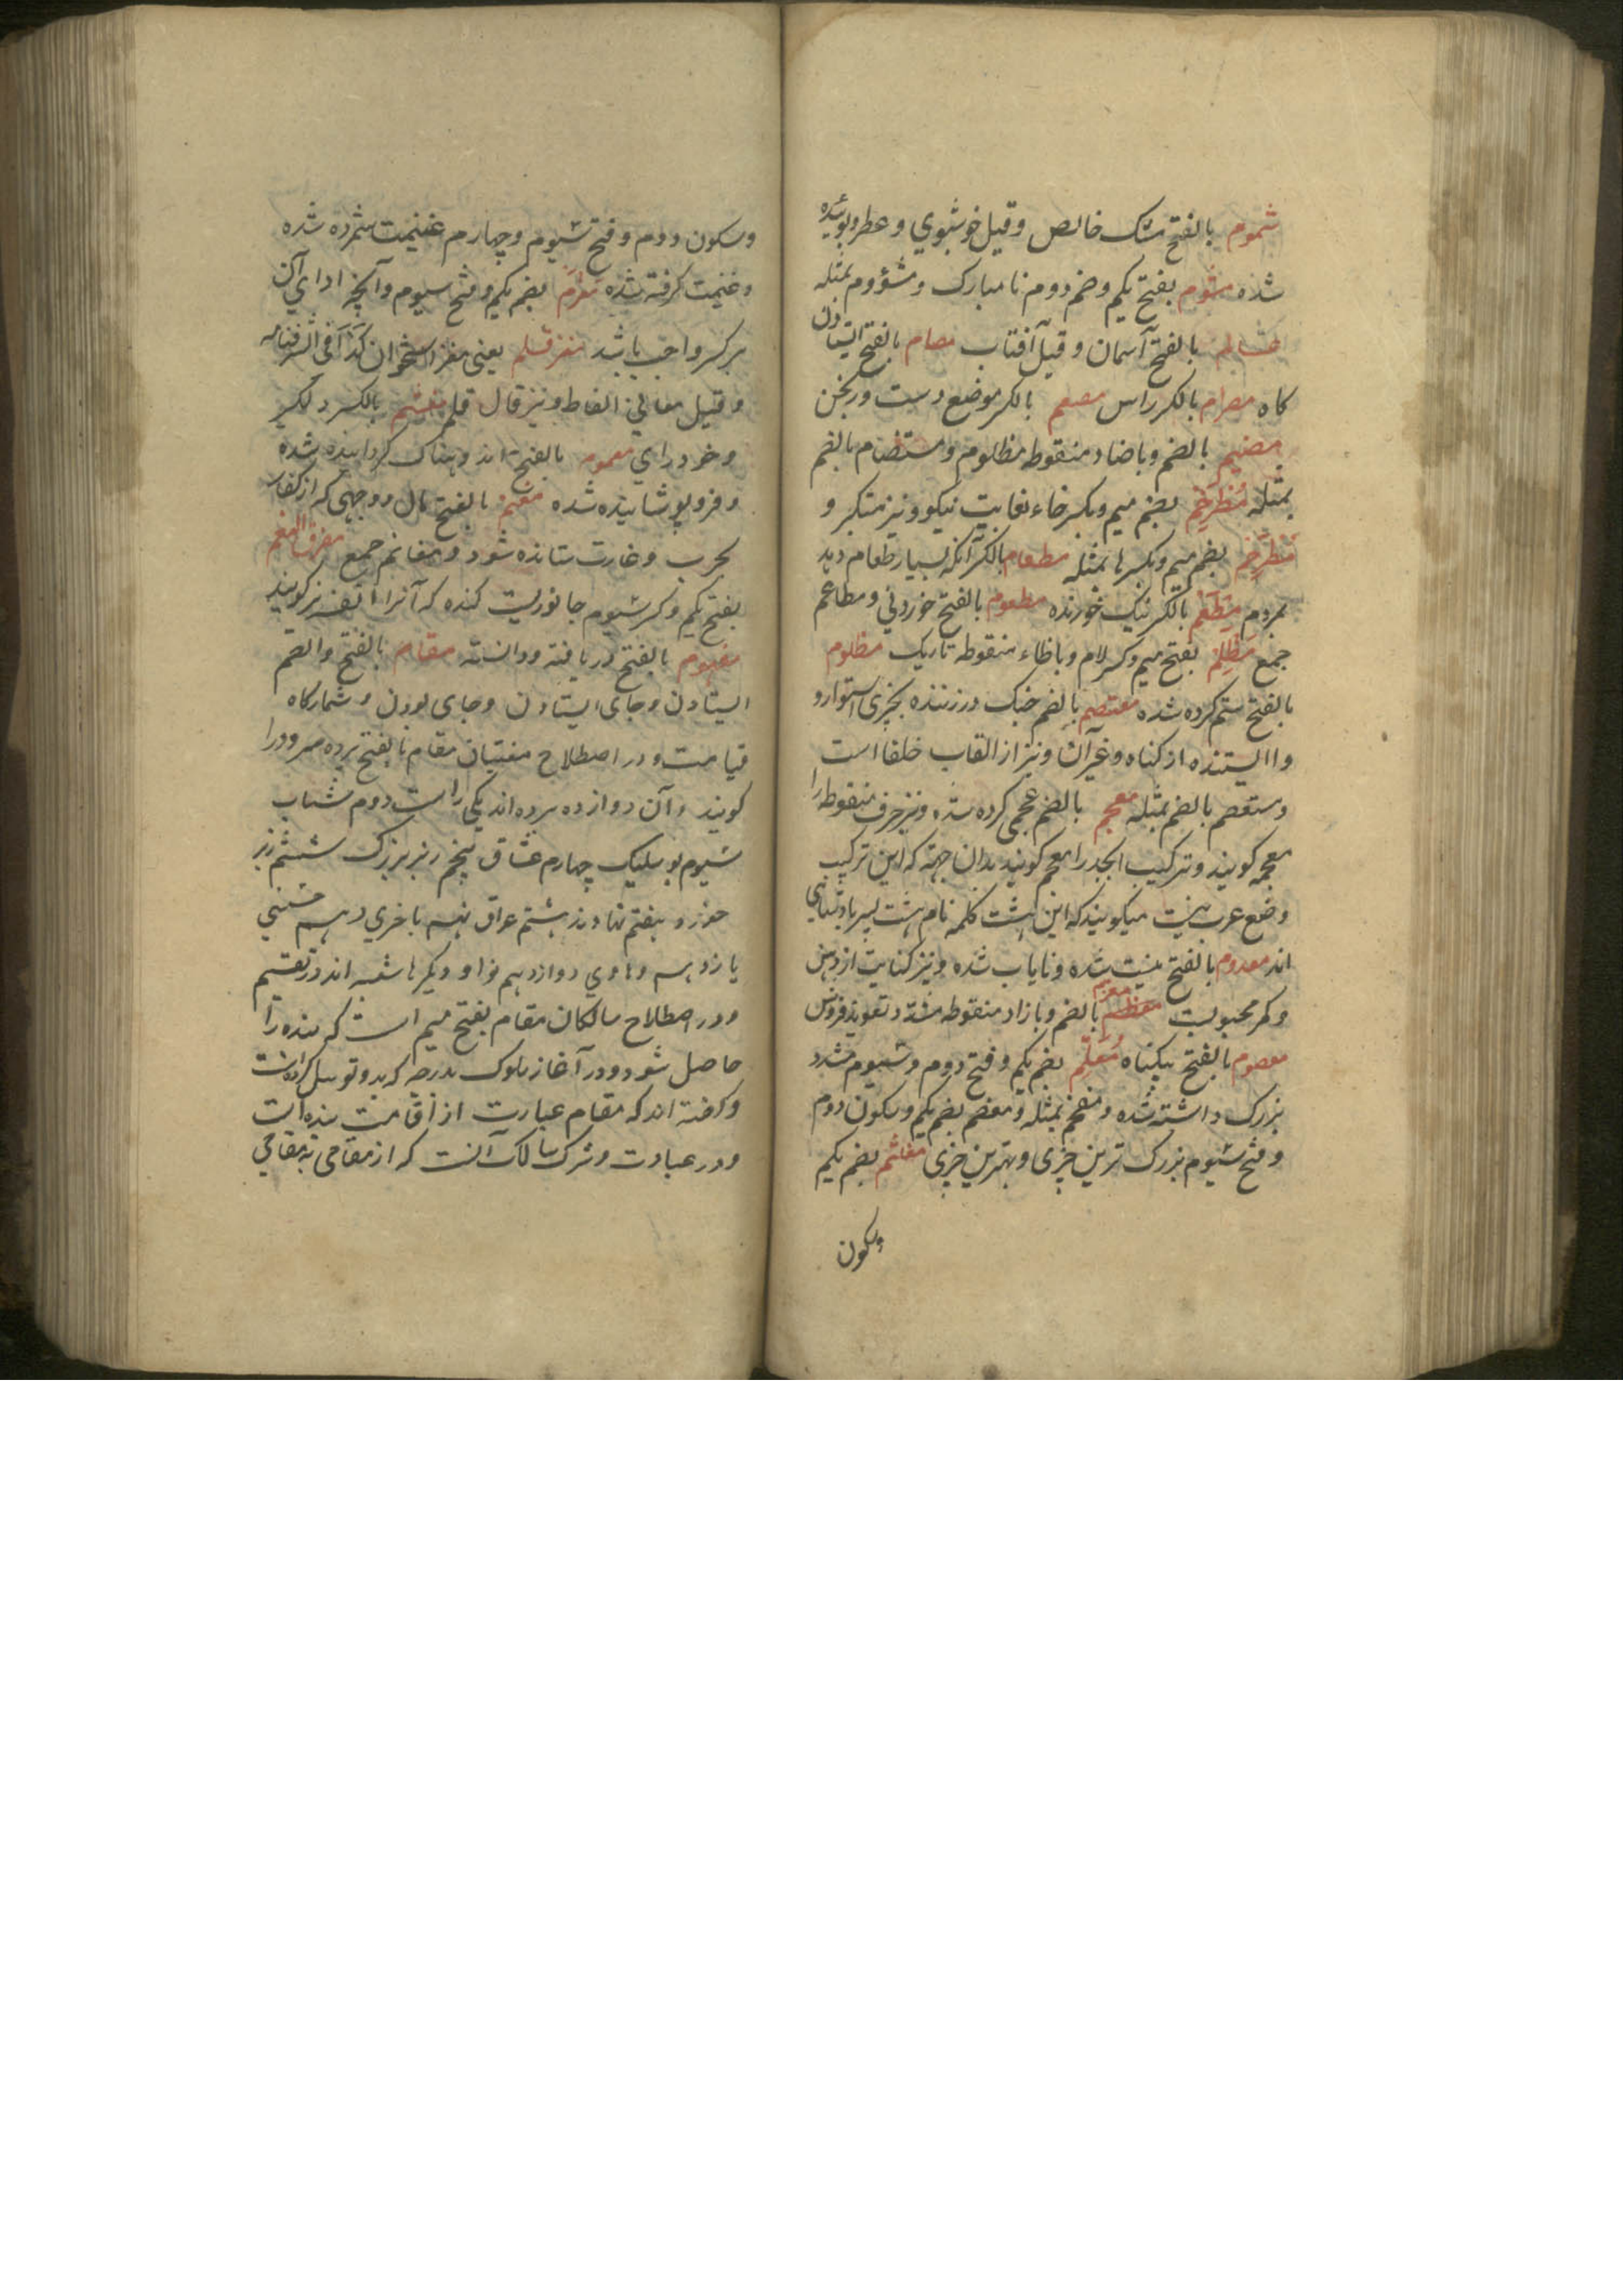 شموم بالفتح مشک خالص و قیل خوشبوی و عطر و بوئیده
شده مشوم بفتح یکم و ضم دوم نا مبارک و مشؤوم بمثله
بالفتح آسمان و قیل آفتاب مصام بالفتح ایستادن
کاه مصرام بالکسر راس مصعم بالکسر موضع دست ورنجن
مضیم بالضم و با ضاد منقوطه مظلوم و مستضام بالضم
بمثله مطرخم بضم میم و بکسر خاء بغایت نیکو و نیز متکبر و
بضم میم و بکسر ها بمثله مطعام بالکسر آنکه بسیار طعام دهد
بمردم مطعم بالکسر نیک خورنده مطعوم بالفتح خوردنی و مطاعم
جمع مظلم بفتح میم و کسر لام و با ظاء منقوطه تاریک مظلوم
بالفتح ستم کرده شده معتصم بالضم چنک در زننده بچیزی استوار و
وا ایستنده از کناه و غیر آن و نیز از القاب خلفا است
و ستعصم بالضم بمثله معجم بالضم عجمی کرده شده و نیز حرف منقوطه را
معجمه کویند و ترکیب ابجد را معجم کویند بدان جهته که این ترکیب
وضع عرب نیست میکویند که این هشت کلمه نام هشت پسر پادشاهی
اند معدوم بالفتح نیست شده و نایاب شده و نیز کنایت از دهن
و کمر محبوبست معظم معزم بالضم و با زاء منقوطه مشدد تعویذ فروش
معصوم بالفتح بیکناه معظم بضم یکم و فتح دوم و سیوم مشدد
بزرک داشته شده و مفخم بمثله و معظم بضم یکم و سکون دوم
و فتح سیوم بزرک ترین چیزی و بهترین چیزی مغتنم بضم یکم
وسکون
وسکون دوم و فتح سیوم و چهارم غنیمت شمرده شده
و غنیمت کرفته شده مغرم بضم یکم و فتح سیوم و آنچه ادای آن
بر کسی واجب باشد مغز قلم یعنی مغز استخوان کذا فی الشرفنامه
و قیل معانی الفاظ و نیز قال قلم مغشم بالکسر دلکیر
و خودرای مغموم بالفتح اندوهناک کردانیده شده
و فرو پوشانیده شده مغنم بالفتح مال و وجهی که از کفار
بحرب و غارت ستانده شود و مغانم جمع مفرق الغنم
بفتح یکم و کسر سیوم جانوریست کنده که آنرا نیز کویند
مفهوم بالفتح دریافته و دانسته مقام بالفتح و الضم
ایستادن و جای ایستادن و جای بودن و شمارکاه
قیامت و در اصطلاح مغنیان مقام بالفتح پرده سرود را
کویند و آن دوازده پرده اند یکی راست دوم شتاب
سیوم بوسلیک چهارم عشاق پنجم زیر بزرک ششم زیر
خورد هفتم نهاوند هشتم عراق نهم باخری دهم حسینی
یازدهم رهاوی دوازدهم نوا و دیکرها شعبه اند در تقسیم
و در اصطلاح سالکان مقام بفتح میم است که بنده را
حاصل شود و در آغاز سلوک بدرجه که بدو توسل کرده است
و کفته اند که مقام عبارت از اقامت بنده است
و در عبادت و شرک سالک آنست که از مقامی بمقامی